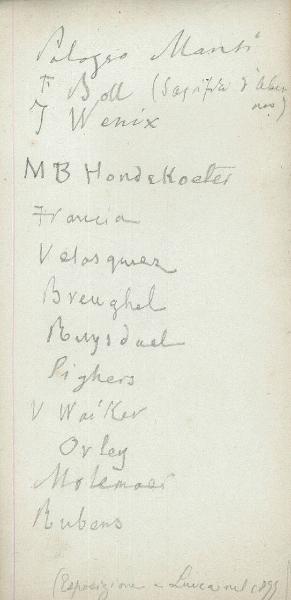 Palazzo Mansi
F Boll (Sagrifizio d'Abra
mo)
J Wenix
M B HondeKoeter
Francia
Velasquez
Breughel
Ruysdael
V
Orley
Molemaer
Rubens
(Esposizione a Lucca nel 1893